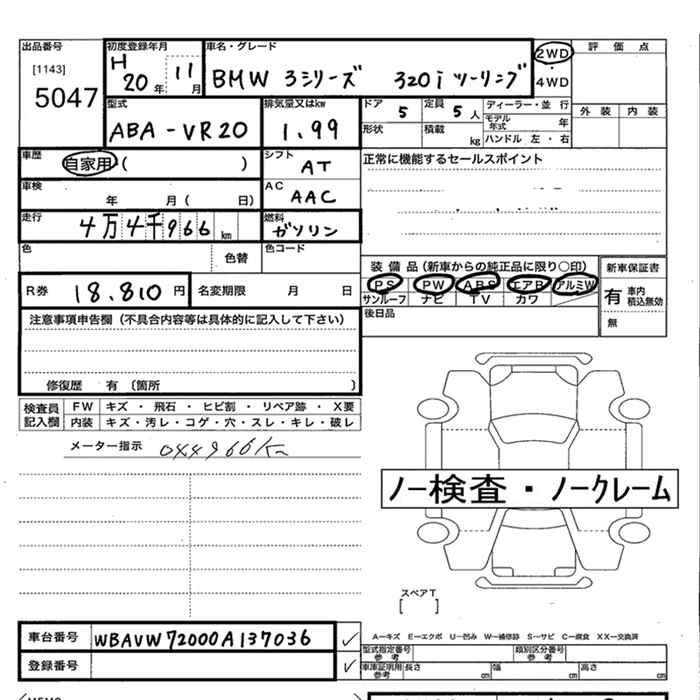 出品番号
[1143]
5047
初度登録年月
H
20 年 11 月
車名・グレード
BMW 3シリーズ 320i ツーリング
2WD
・
4WD
評価点
外装 内装
型式
ABA-VR20
排気量又はkw
1.99
ドア 5
定員 5 人
形状
積載 kg
ディーラー・並行
モデル年式 年
ハンドル 左・右
車歴
自家用( )
シフト
AT
正常に機能するセールスポイント
車検
年 月( 日)
AC
AAC
走行
4万4千966 km
燃料
ガソリン
色
色替
色コード
装備品(新車からの純正品に限り○印)
PS PW ABS エアB アルミW
サンルーフ ナビ TV カワ
新車保証書
有 車内積込無効
無
R券 18.810円
名変期限 月 日
後日品
注意事項申告欄(不具合内容等は具体的に記入して下さい)
修復歴 有〔箇所 〕
検査員記入欄
FW キズ・飛石・ヒビ割・リペア跡・X要
内装 キズ・汚レ・コゲ・穴・スレ・キレ・破レ
メーター指示 044966K
ノー検査・ノークレーム
スペアT
[ ]
車台番号 WBAVW72000A137036
登録番号
A−キズ E−エクボ U−凹み W−補修跡 S−サビ C−腐食 XX−交換済
型式指定番号 参考
類別区分番号 参考
車庫証明用 参考 長さ cm 幅 cm 高さ cm
MEMO